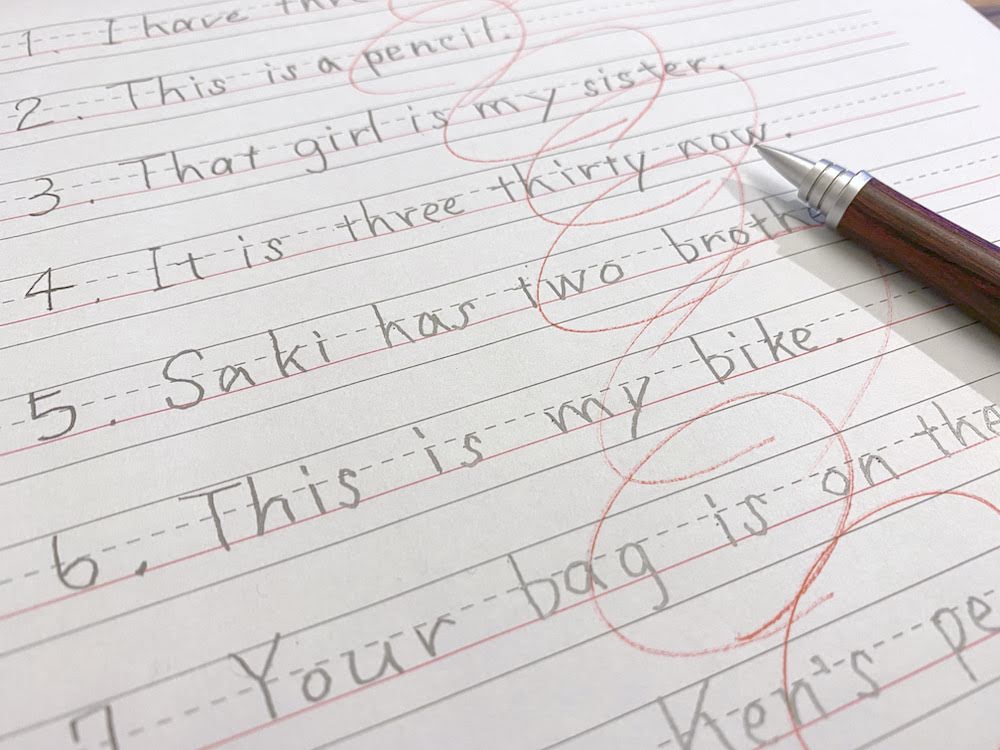 1. I have
2. This is a pencil.
3. That girl is my sister.
4. It is three thirty now.
5. Saki has two
6. This is my bike.
7. Your bag is on the
Ken's